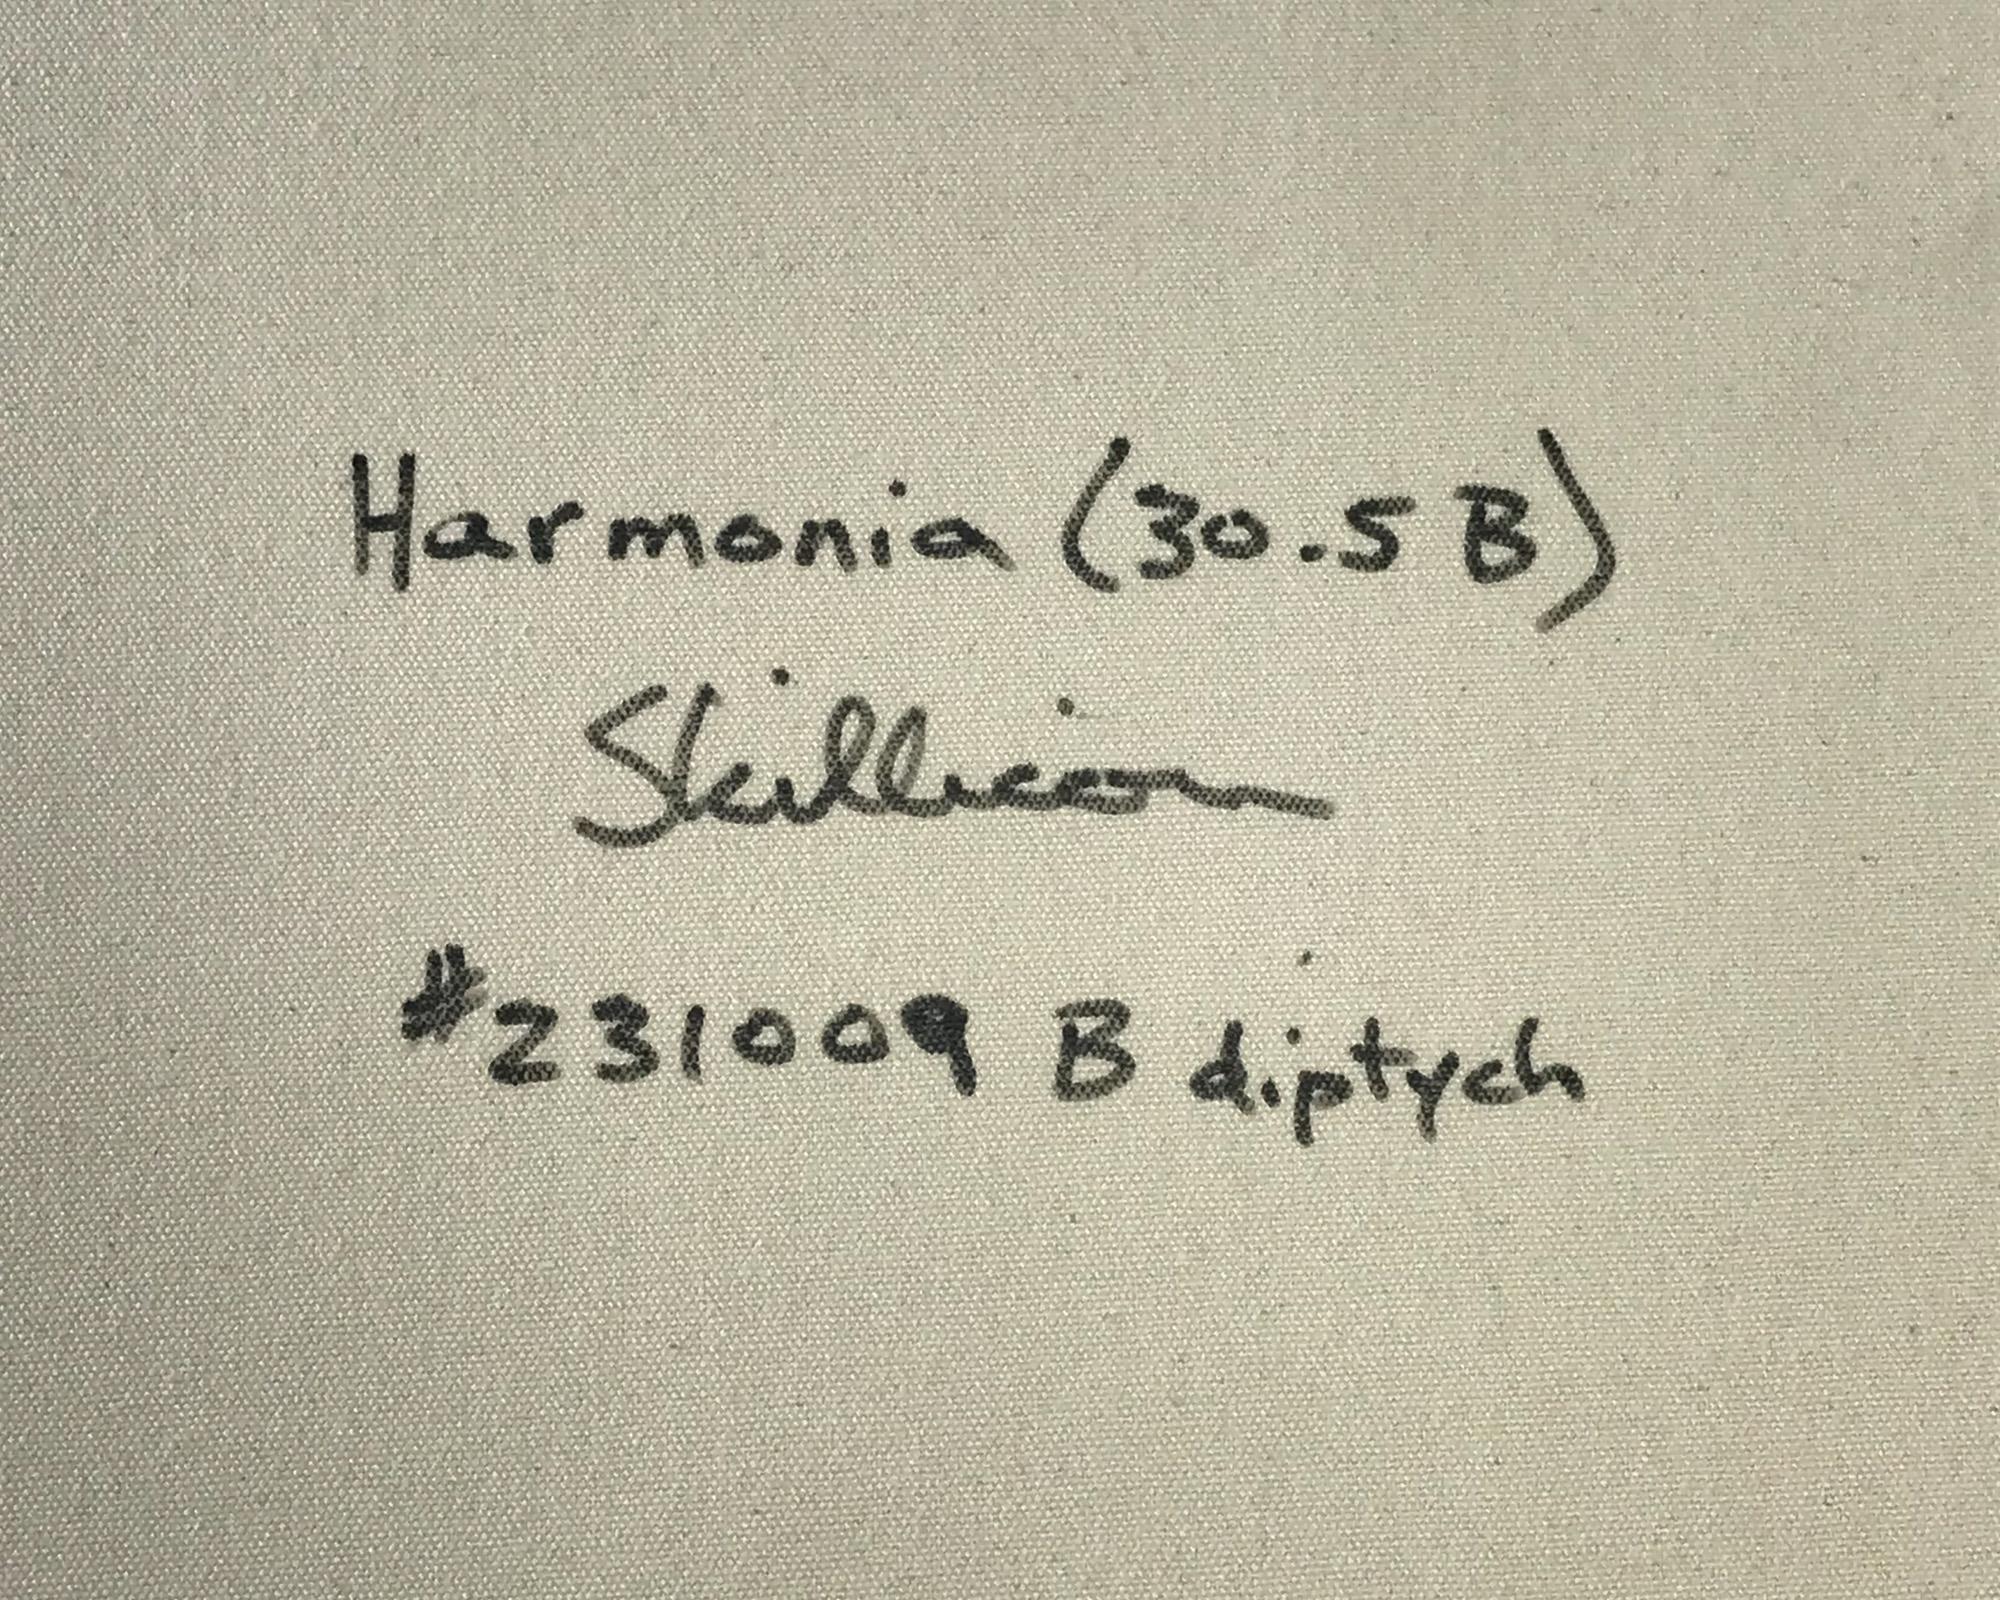 Harmonia (30.5B)
Skillicorn
#231009 B diptych